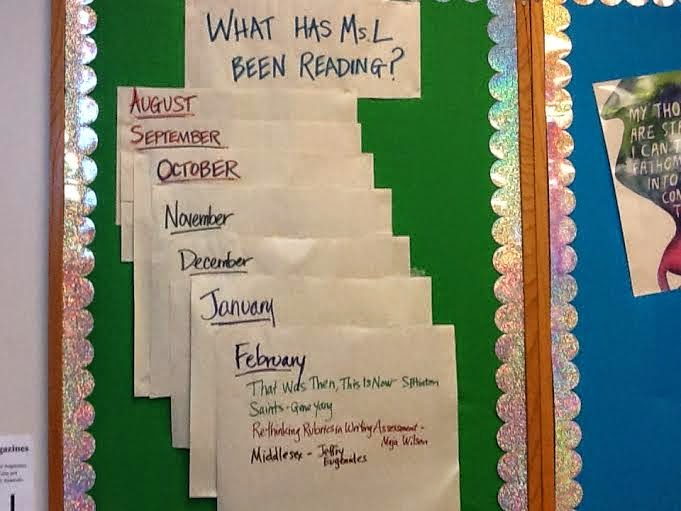 WHAT HAS Ms. L
BEEN READING?
AUGUST
SEPTEMBER
OCTOBER
November
December
January
February
That Was Then, This Is Now SEHinton
Saints - Gene Yang
Rethinking Rubrics in Writing Assessment -
Maja Wilson
Middlesex - Jeffry
Eugenides
MY THO
ARE STA
I CAN
FATHOM
INTO
CON
T
gazines